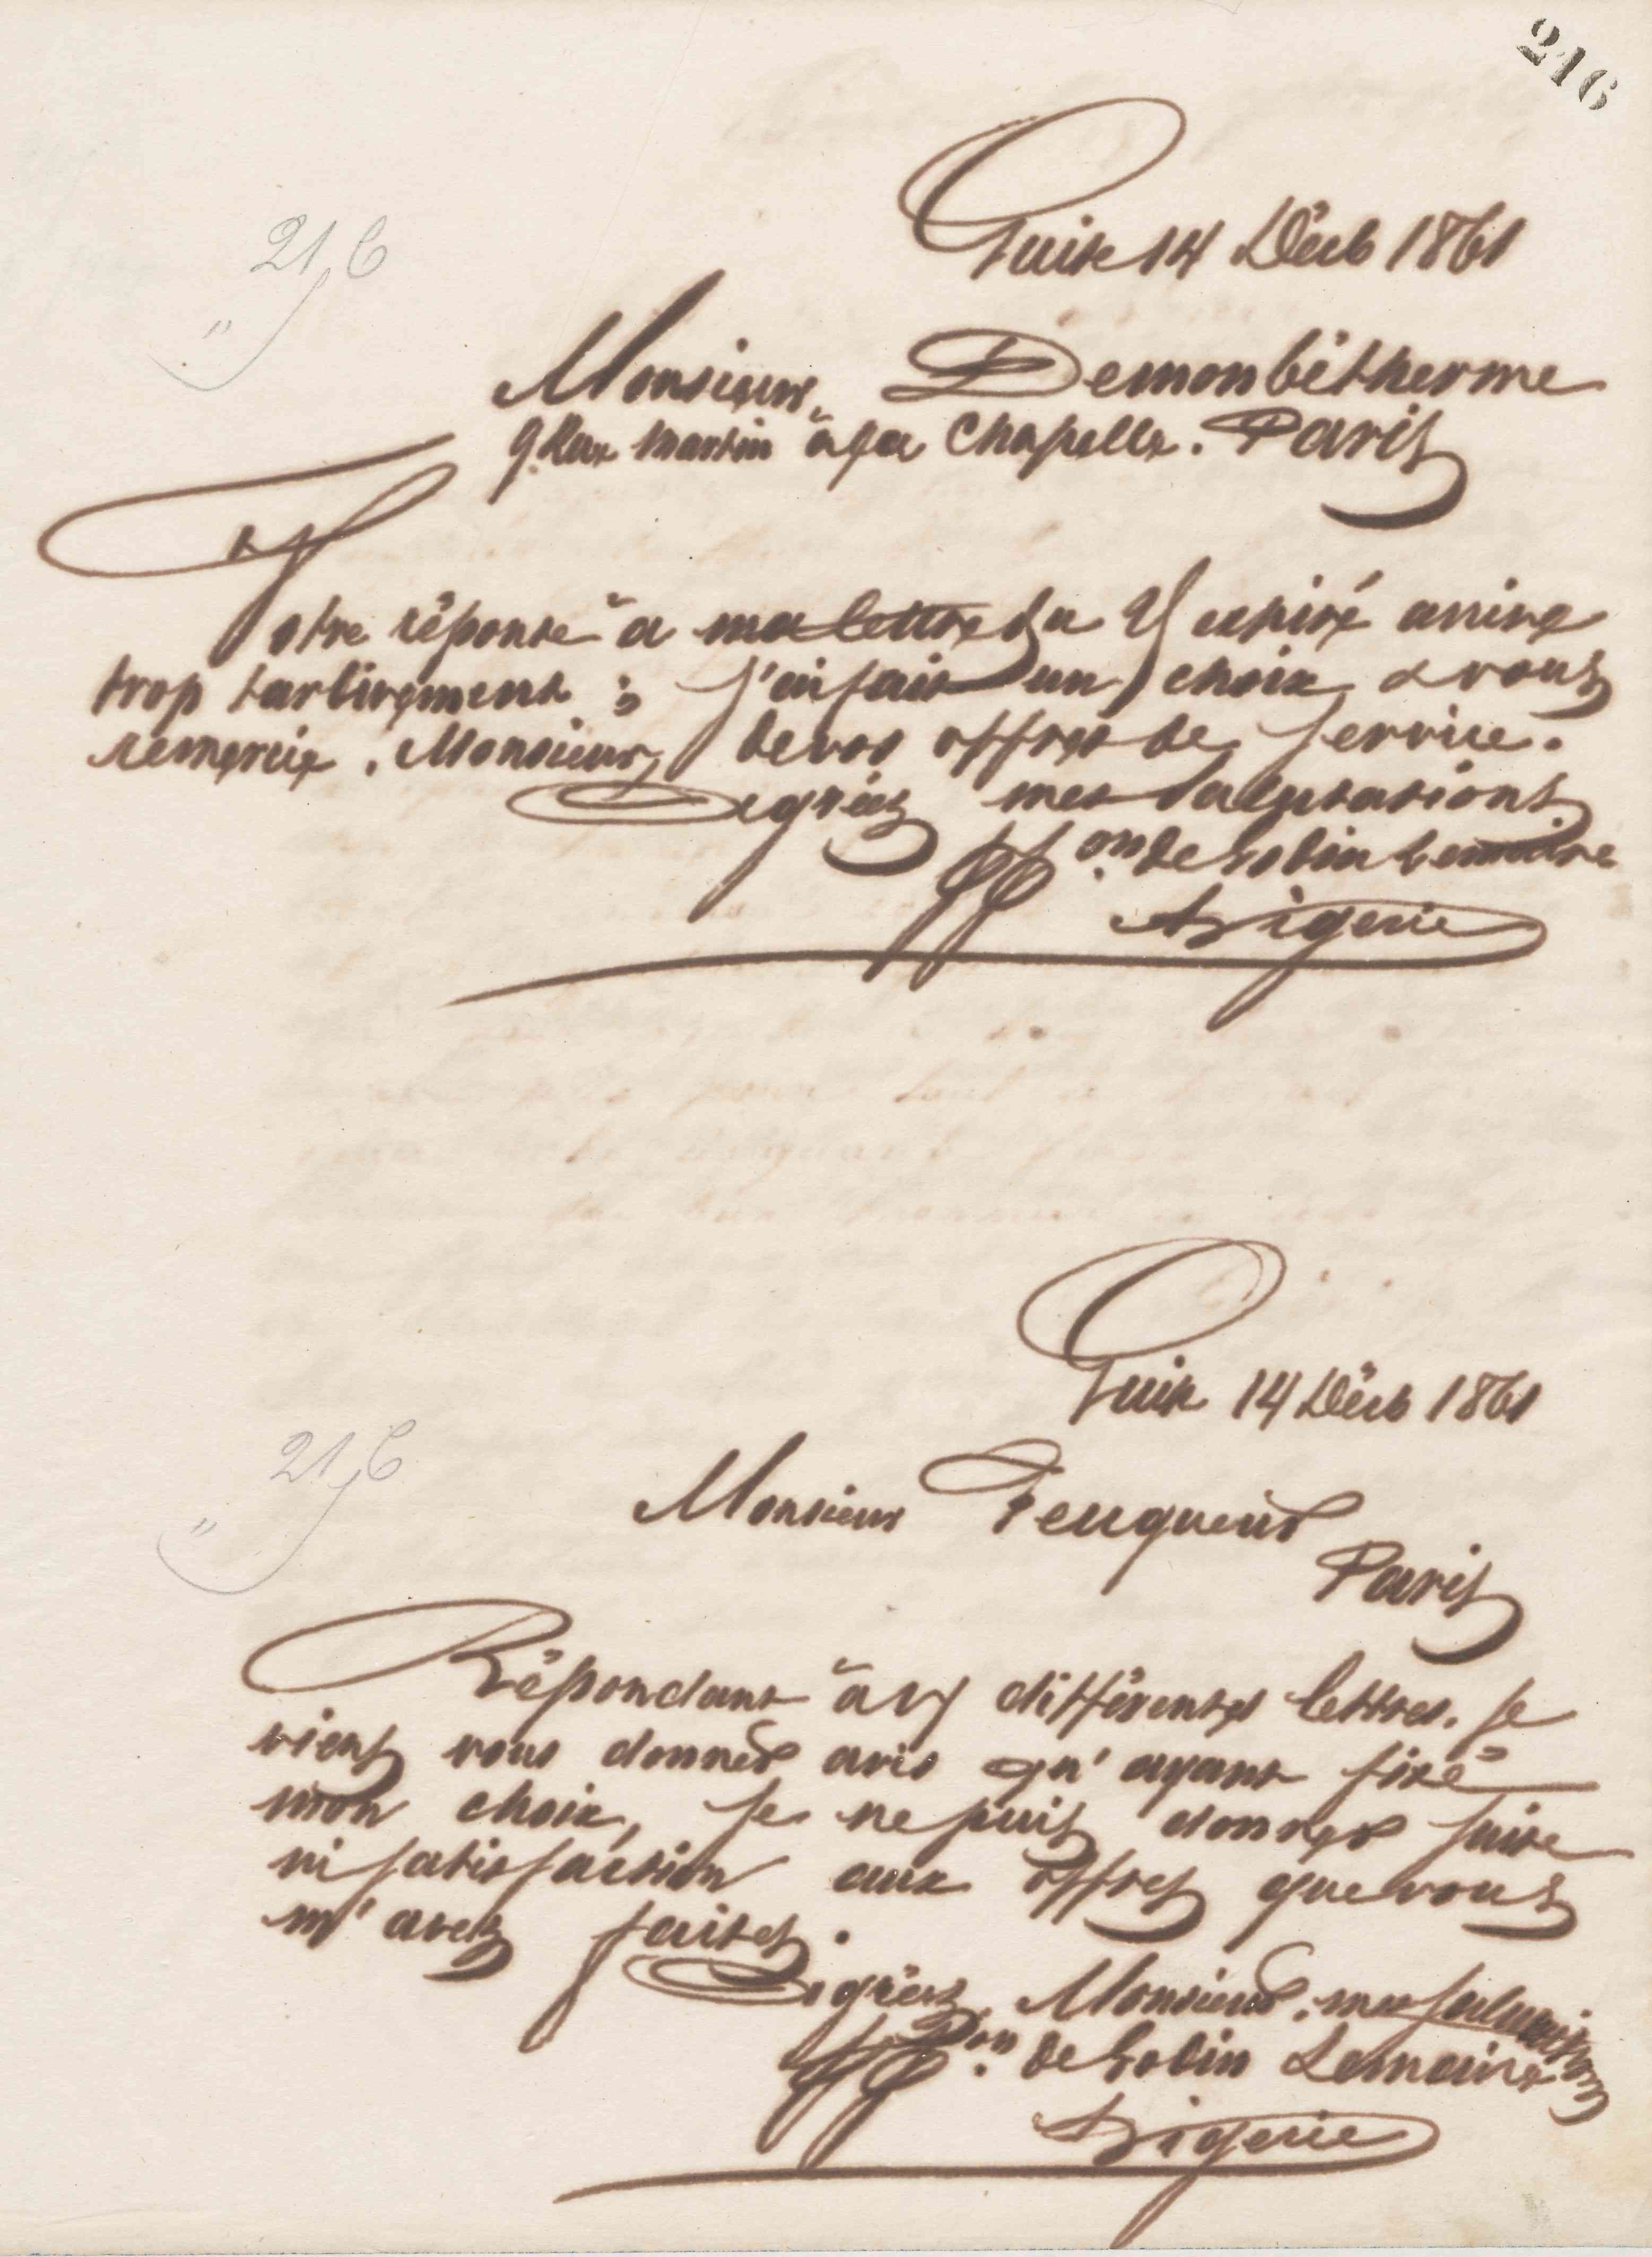 216
216
"
Guise 14 Décb 1861
Monsieur, Demonbétherme
9 Rue Martin à la Chapelle. Paris
Votre réponse à ma lettre du expiré arrive
trop tardivement ; j'ai fait un choix, & vous
remercie, Monsieur, de vos offres de service.
Agréez mes salutations.
pp on de Godin Lemaire
Guise 14 Décb 1861
216
"
Monsieur Feuqueur
Paris
Répondant à vos différentes lettres. Je
viens vous donner avis qu'ayant fixé
mon choix, je ne puis donner suite
ni satisfaction aux offres que vous
m'avez faites.
Agréez, Monsieur, mes salutations
pp on de Godin Lemaire